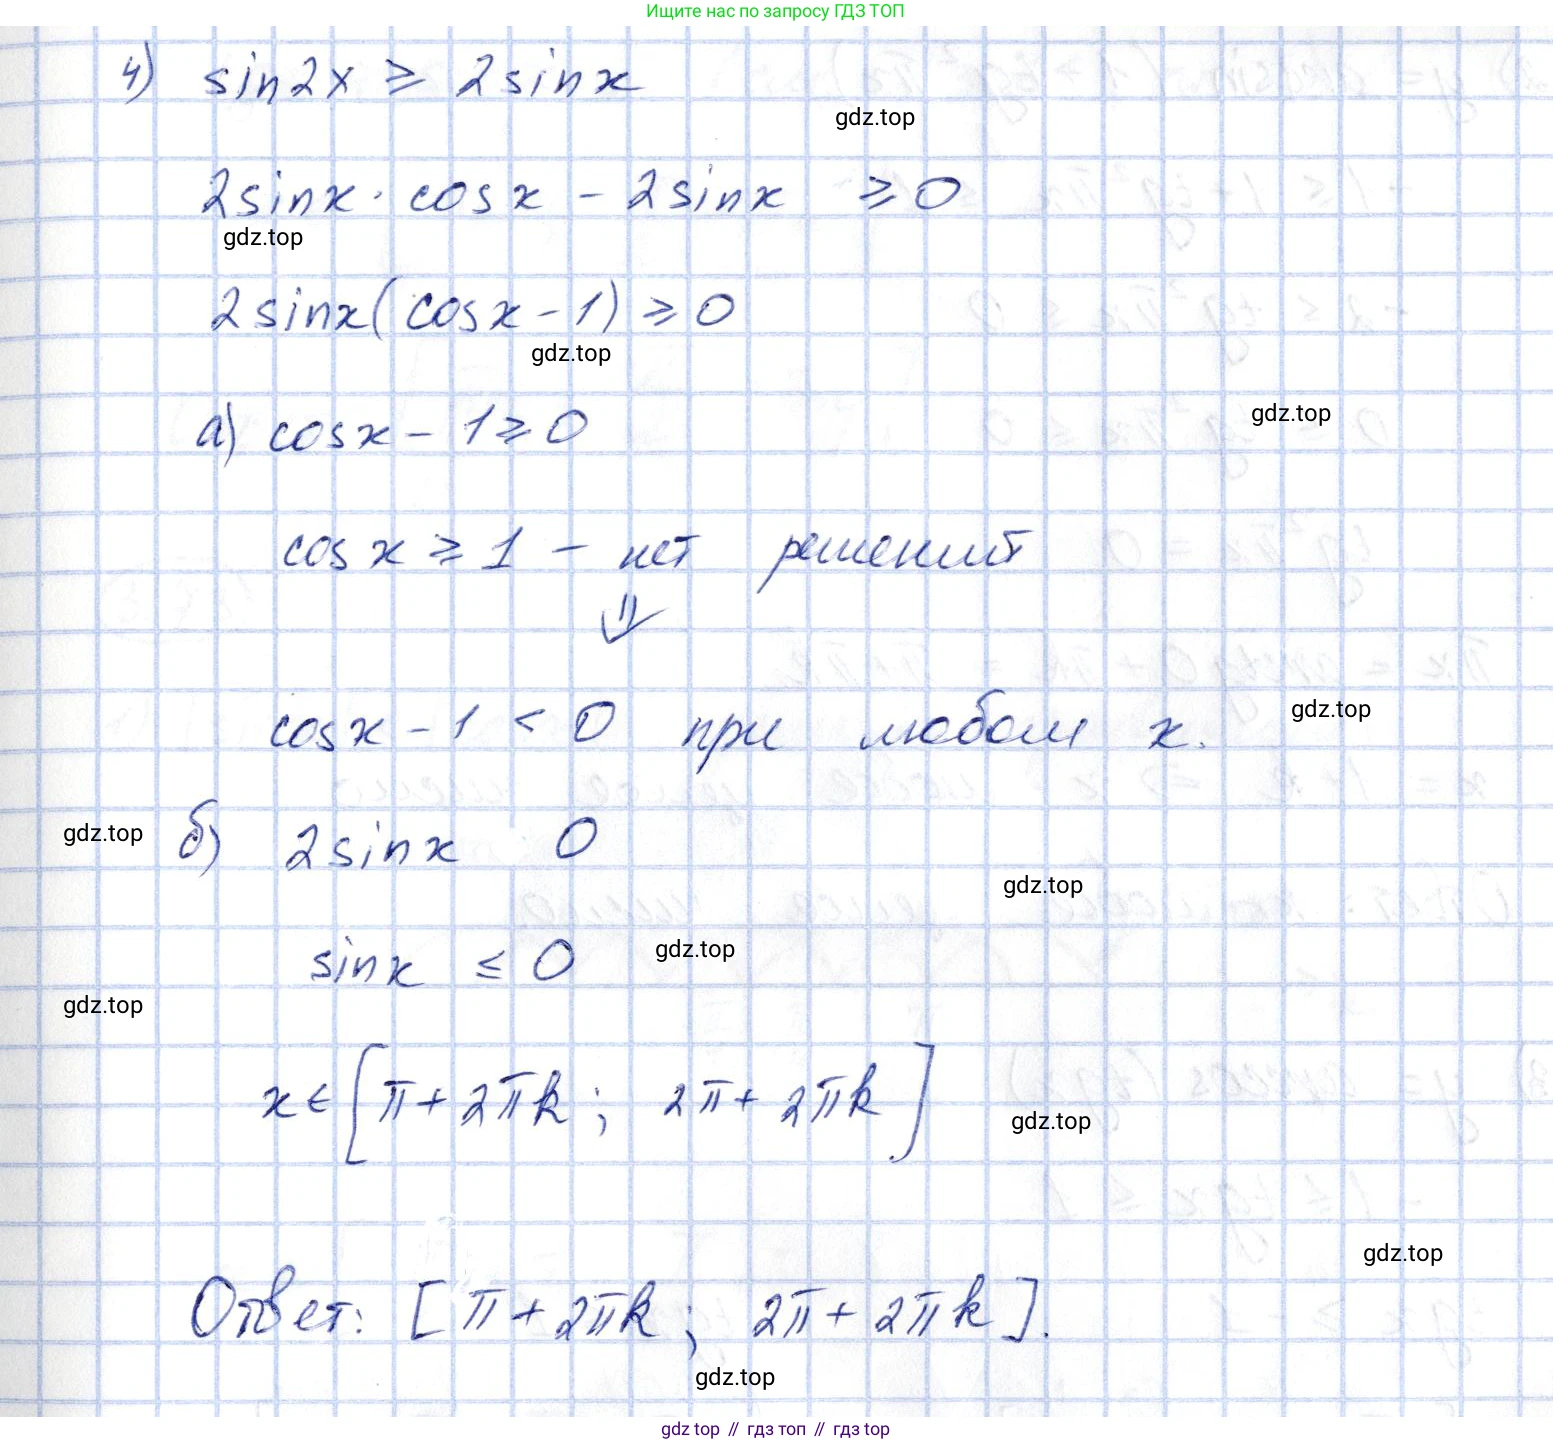 Ищите нас по запросу ГДЗ ТОП
4) sin2x ≥ 2sinx
gdz.top
2sinx · cosx - 2sinx ≥ 0
gdz.top
2sinx(cosx - 1) ≥ 0
gdz.top
gdz.top
а) cosx - 1 ≥ 0
cosx ≥ 1 - нет решений
⇓
gdz.top
cosx - 1 < 0 при любом x.
gdz.top
б) 2sinx 0
gdz.top
sinx ≤ 0
gdz.top
gdz.top
x ∈ [π + 2πk ; 2π + 2πk]
gdz.top
gdz.top
Ответ: [π + 2πk ; 2π + 2πk].
gdz.top
gdz top // гдз топ // гдз top